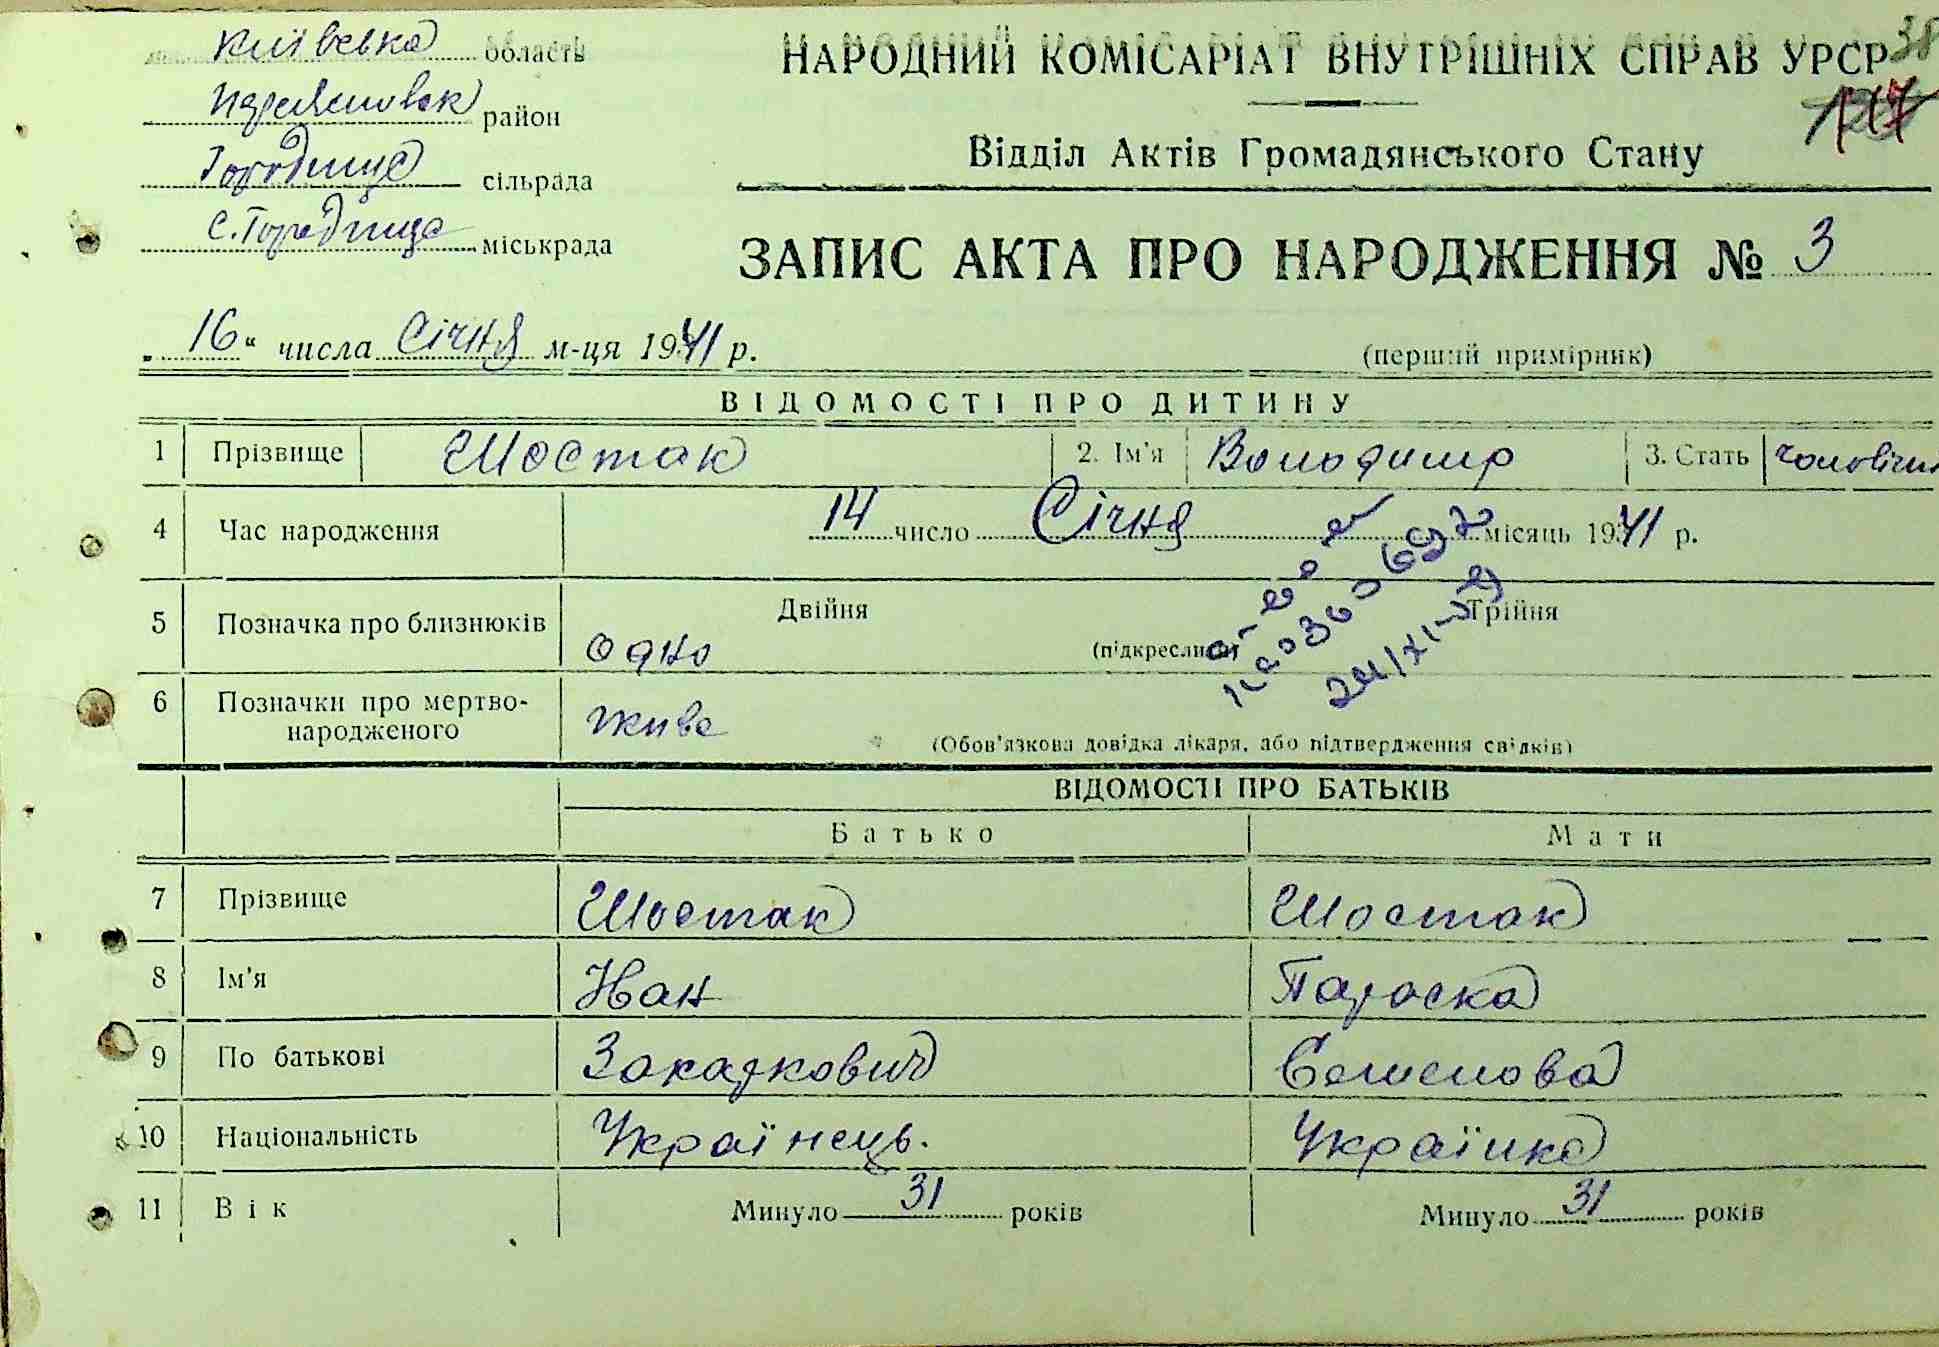 Київська область
район
Городище сільрада
с. Городище міськрада
НАРОДНИЙ КОМІСАРІАТ ВНУТРІШНІХ СПРАВ УРСР
38
117
Відділ Актів Громадянського Стану
ЗАПИС АКТА ПРО НАРОДЖЕННЯ № 3
„16“ числа Січня м-ця 1941 р.
(перший примірник)
ВІДОМОСТІ ПРО ДИТИНУ
1 Прізвище Шостак 2. Ім'я Володимир 3. Стать
4 Час народження 14 число Січня місяць 1941 р.
5 Позначка про близнюків Двійня Трійня
одно (підкреслити)
6 Позначки про мертво-
народженого живе
(Обов'язкова довідка лікаря, або підтвердження свідків)
ВІДОМОСТІ ПРО БАТЬКІВ
Батько Мати
7 Прізвище Шостак Шостак
8 Ім'я Іван Параска
9 По батькові Захаркович Семенова
10 Національність Українець. Українка
11 Вік Минуло 31 років Минуло 31 років